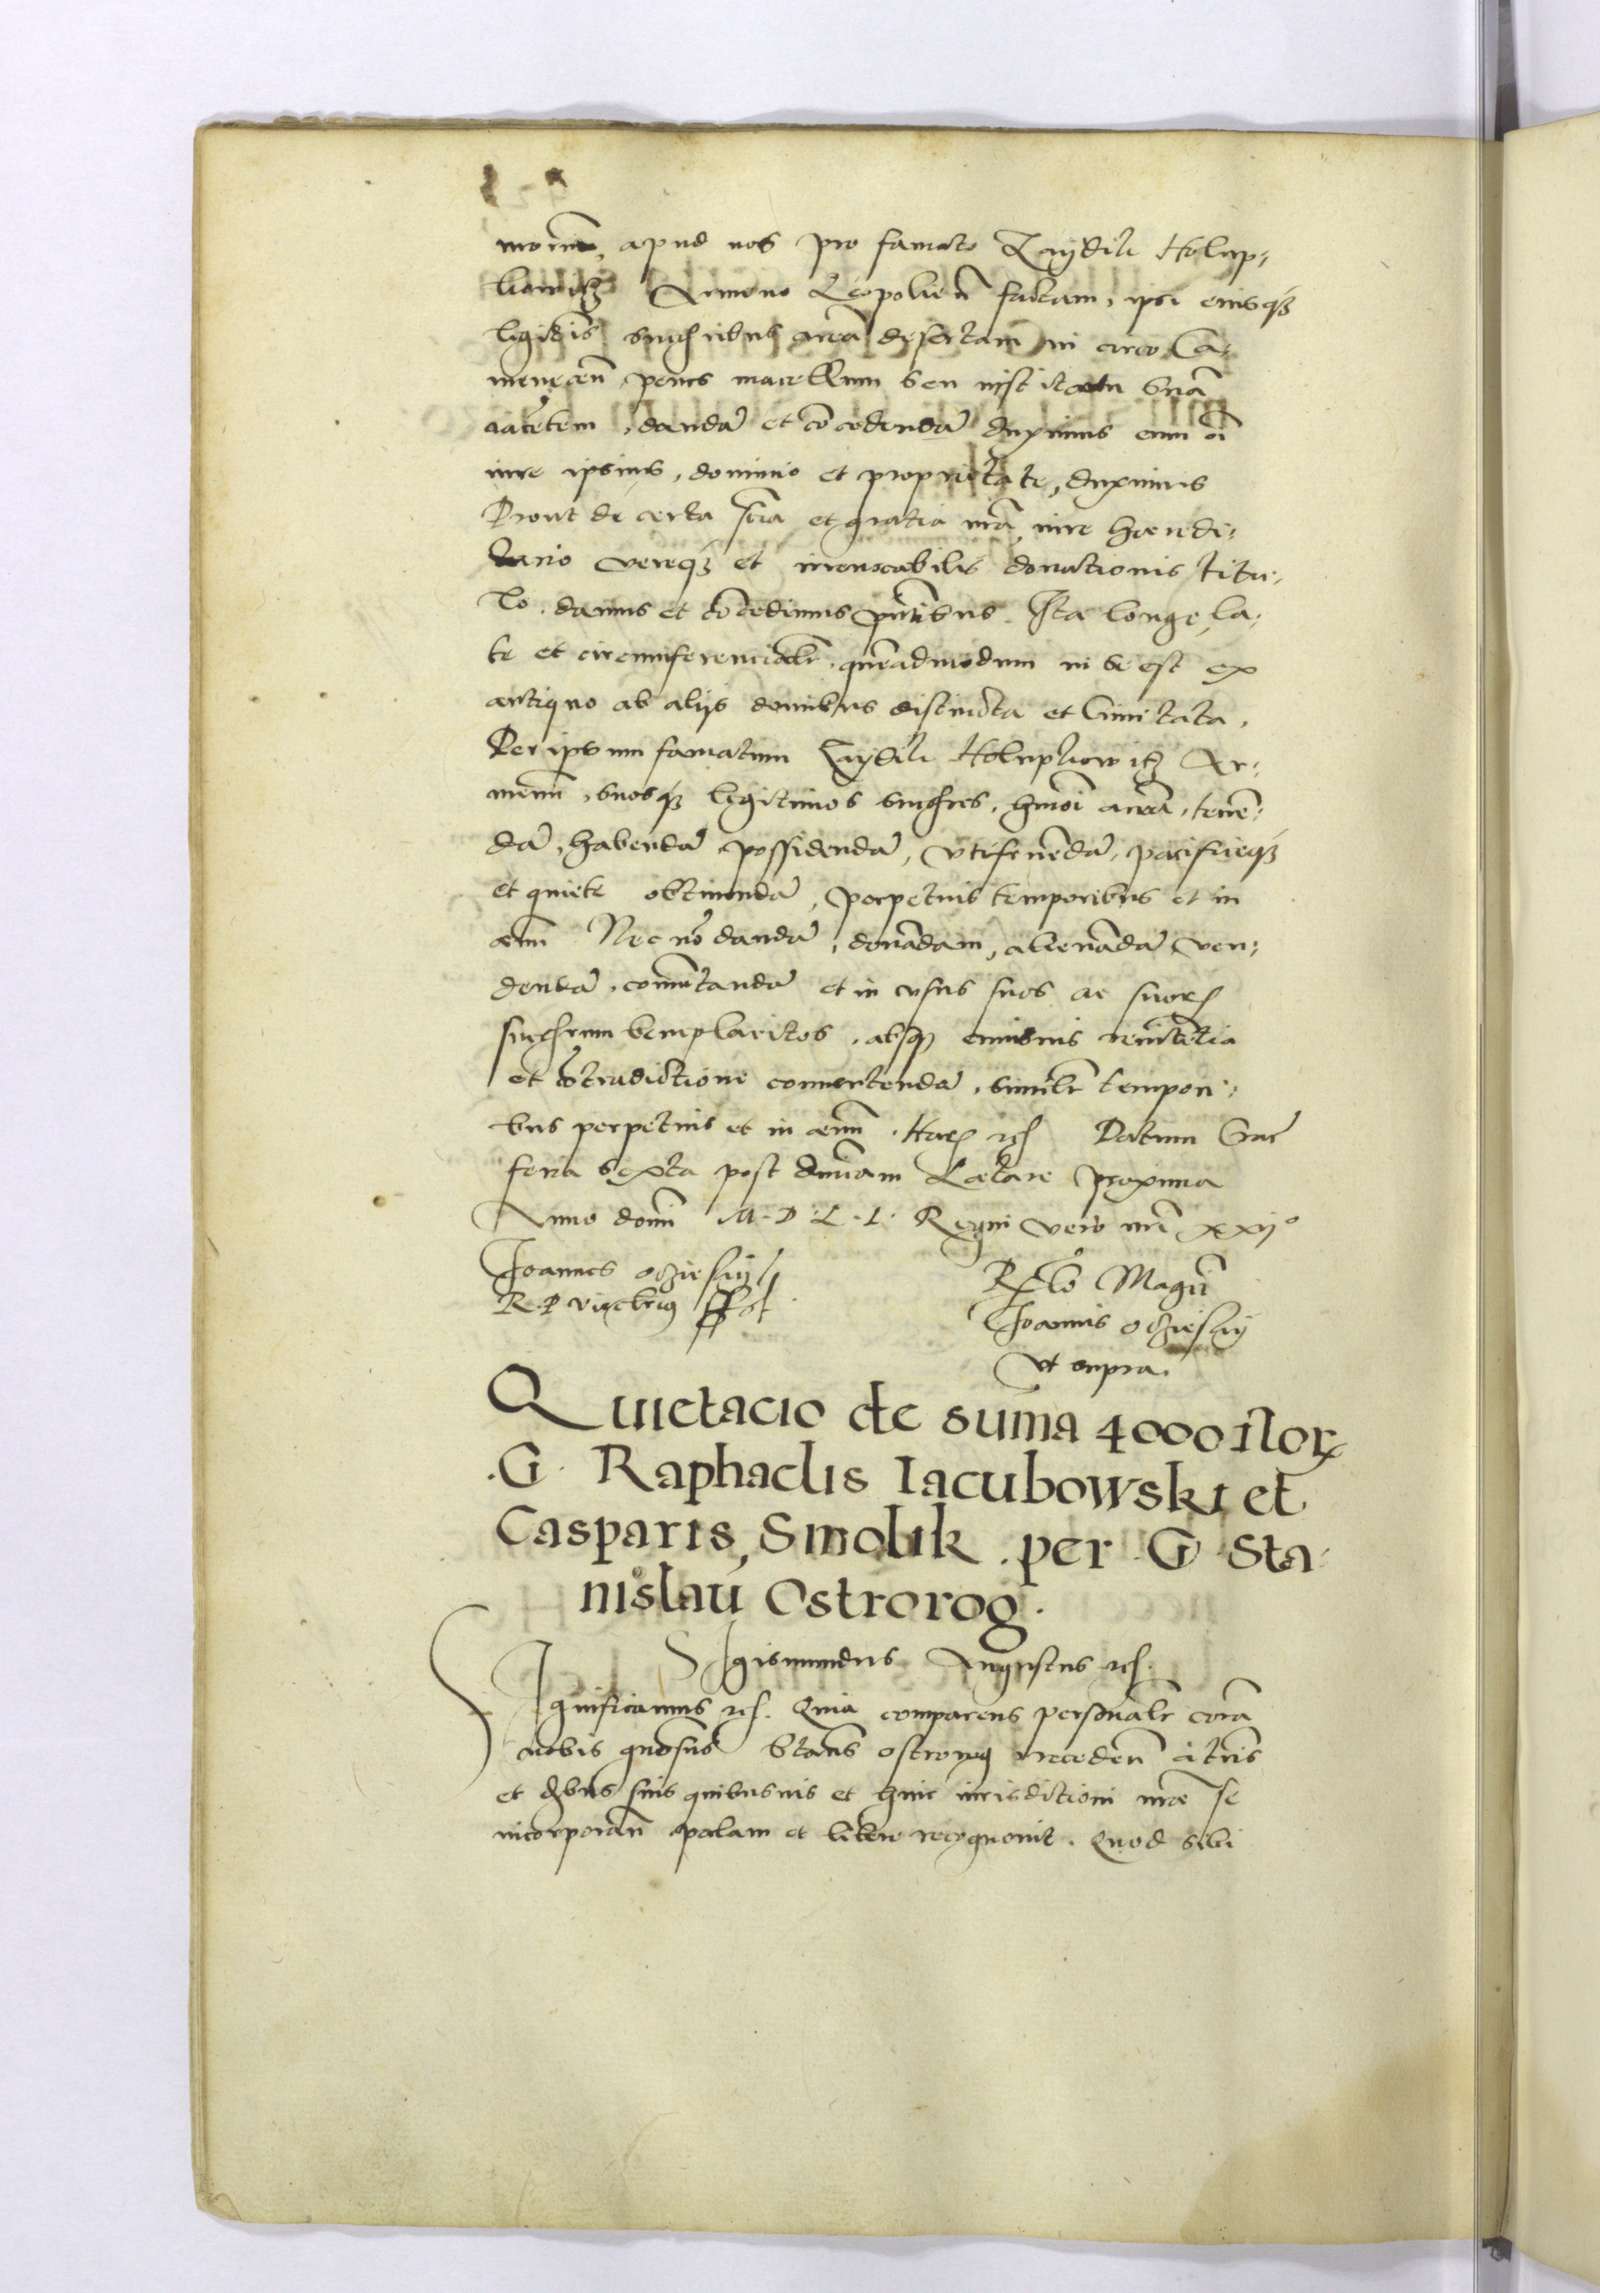 apud nos pro famato Zaydili Holup-
liowicz Armeno Leopolien factam, ipsi eiusq
legitis succribus area desertam in circo Ca-
menecen penes macellum seu institam suam
iacentem, danda et concedenda duximus cum oi
iure ipsius, dominio et proprietate, duximus
Prout de certa scia et gratia nra, iure haeredi-
tario vereq et irrevocabilis donationis titu-
lo damus et concedimus pntibus. Ita longe, la-
te et circumferencialr, quemadmodum in se est ex
antiquo ab alijs domibus distincta et limitata.
Per ipsum famatum Zaydili Holupliowicz Ar-
menum, suosq legitimos succres, hmoi area, tenen-
da, habenda, possidenda, utifruenda, pacificeq
et quiete obtinenda, perpetuis temporibus et in
aeuu Nec no danda, donadam, alienada ven-
denda, comutanda et in usus suos ac suor
succrum beneplacitos, absq cuiusuis renitetia
et cotradictione conuertenda, similr tempori-
bus perpetuis et in aeuu. Har rc Datum Crac
feria sexta post dnicam Laetare proxima
Anno domi M.D.L.I. Regni vero nri xxij°
Joannes oczieskij
R.P. vicecancrius sspt
Rlo Magci
Joannis oczieskij
ut supra.
Quietacio de suma 4000 flor
.G. Raphaelis Iacubowski et
Casparis Smolik per G Sta-
nislau Ostrorog.
Sigismundus Augustus rc.
Significamus rc. Quia comparens personalr cora
nobis gnosus Stans ostrorog recedens a tris
et dibus suis quibusuis et huic iurisdictioni nrae se
incorporan palam et libere recognouit. Quod sibi